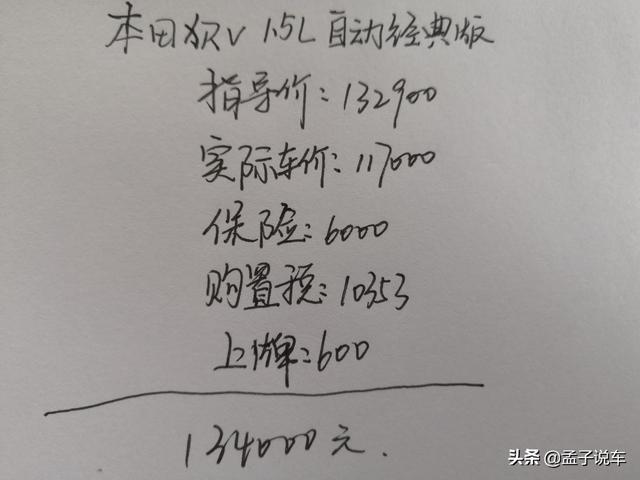 本田XRV 1.5L 自动经典版
指导价:132900
实际车价:117000
保险:6000
购置税:10353
上牌:600
134000元.
头条 @孟子说车